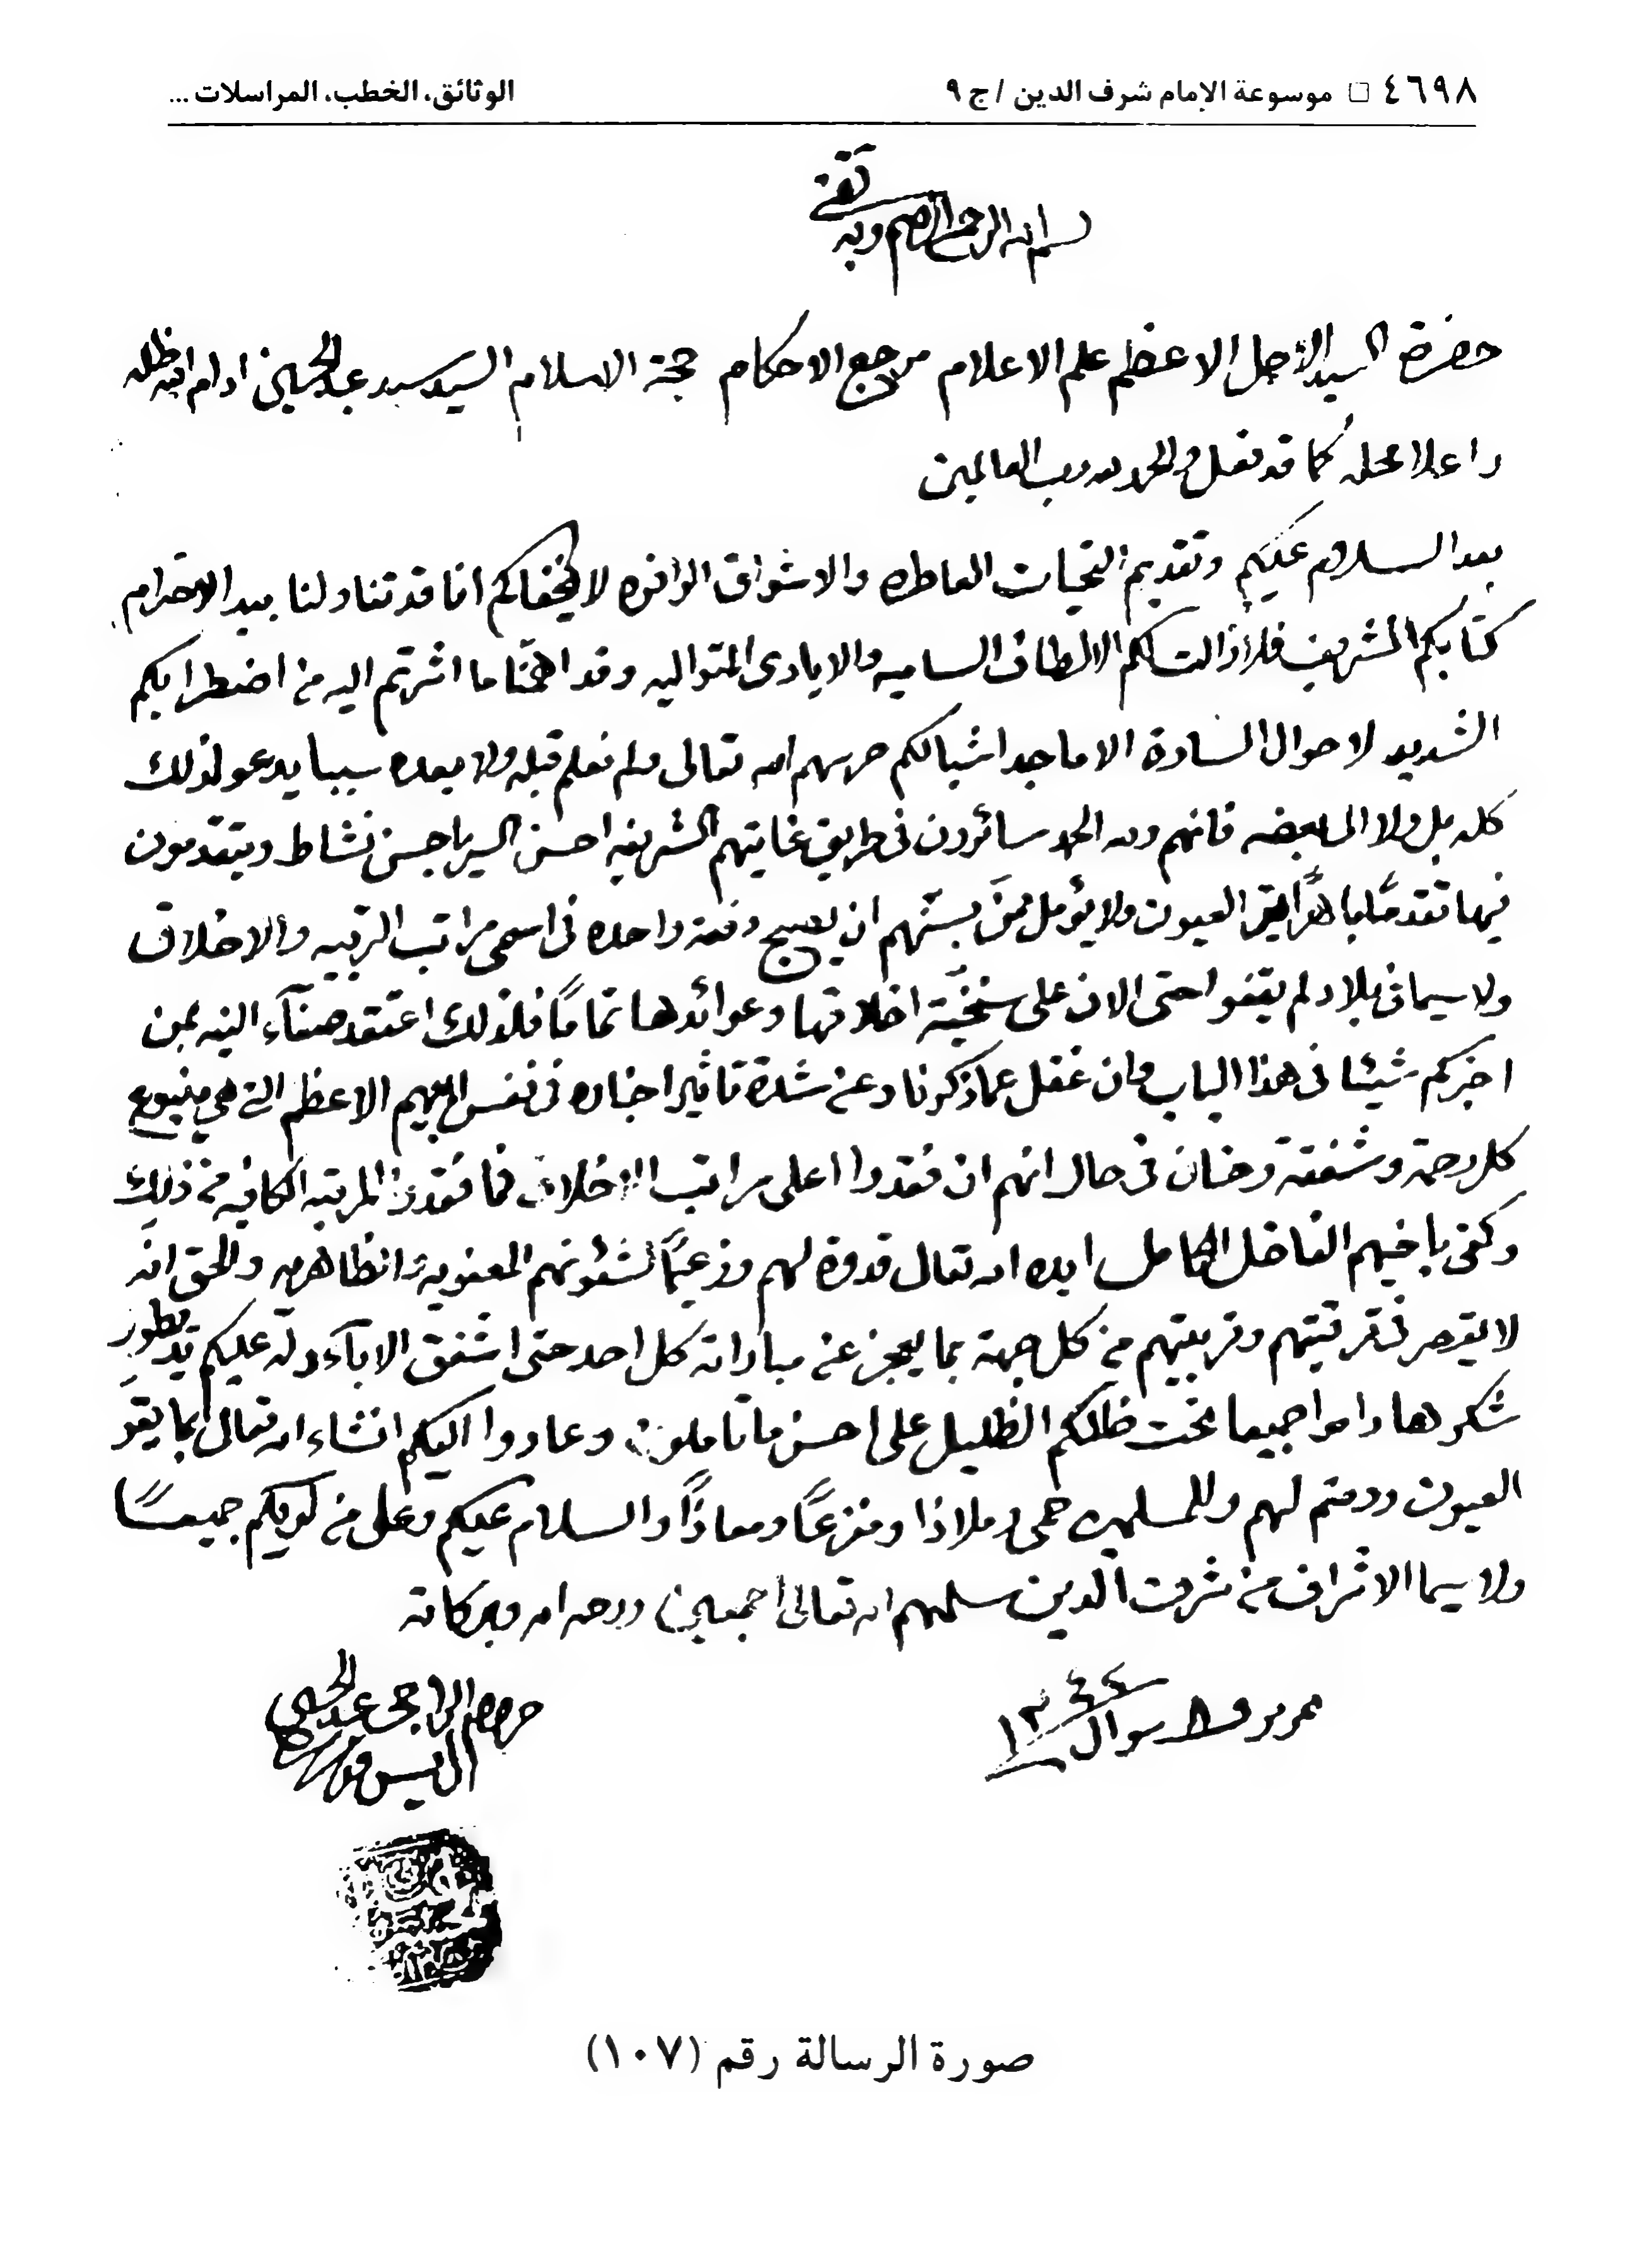 ٤٦٩٨ □ موسوعة الإمام شرف الدين / ج ٩
الوثائق، الخطب، المراسلات ...
بسم الله الرحمن الرحيم وبه ثقتي
حضرة السيد الأجل الاعظم علم الاعلام مرجع الاحكام حجة الاسلام السيد سيد عبد الحسين ادام الله ظله
واعلا محله كما قد فعل والحمد لله رب العالمين
بعد السلام عليكم وتقديم التحيات العاطره والاشواق الوافره لا يخفاكم انا قد تناولنا بيد الاحترام
كتابكم الشريف فلا زالت لكم الالطاف الساميه والايادى المتواليه وقد اهمنا ما اشرتم اليه من اضطرابكم
الشديد لاحوال السادة الاماجد اشبالكم حرسهم الله تعالى ولم نعلم قبله ولا بعده سببا يدعو لذلك
كله بل ولا الى بعضه فانهم ولله الحمد سائرون فى طريق غايتهم الشريفه احسن السير باحسن نشاط ويتقدمون
فيها تقدمًا باهرًا يقر العيون ولا يؤمل ممن بسنّهم ان يصبح دفعة واحده فى اسمى مراتب التربيه والاخلاق
ولا سيما فى بلاد لم يقفوا حتى الان على اخلاقها وعوائدها تمامًا فلذلك اعتقد صفآء النيه بمن
اخبركم شيئا فى هذا الباب وان غفل عما ذكرنا وعن شدة تاثير اخباره فى نفس ابيهم الاعظم التى هي ينبوع
كل رحمة وشفقة وحنان فى حال انهم ان فقدوا اعلى مراتب الاخلاق فما فقدوا المرتبه الكافيه من ذلك
وكفى باخيهم الفاضل الكامل ايده الله تعالى قدوة لهم وزعيمًا لشؤنهم المعنويه والظاهريه والحق انه
لا يقصر فى ترقيتهم وتربيتهم من كل جهة بما يعجز عن مباراته كل احد حتى اشفق الابآء وله عليكم يد بطور
شكرها داموا جميعا تحت ظلكم الظليل على احسن ما تاملون وعادوا اليكم انشاء الله تعالى بما يقر
العيون ودمتم لهم وللمسلمين حمى وملاذا ومفزعًا ومعاذًا والسلام عليكم وعلى من لديكم جميعـًا
ولا سيما الاشراف من شرف الدين سلمهم الله تعالى اجمعين ورحمة الله وبركاته
شوال ١٣٤٤
الراجى عبد الحسين
ال يس
صورة الرسالة رقم (١٠٧)